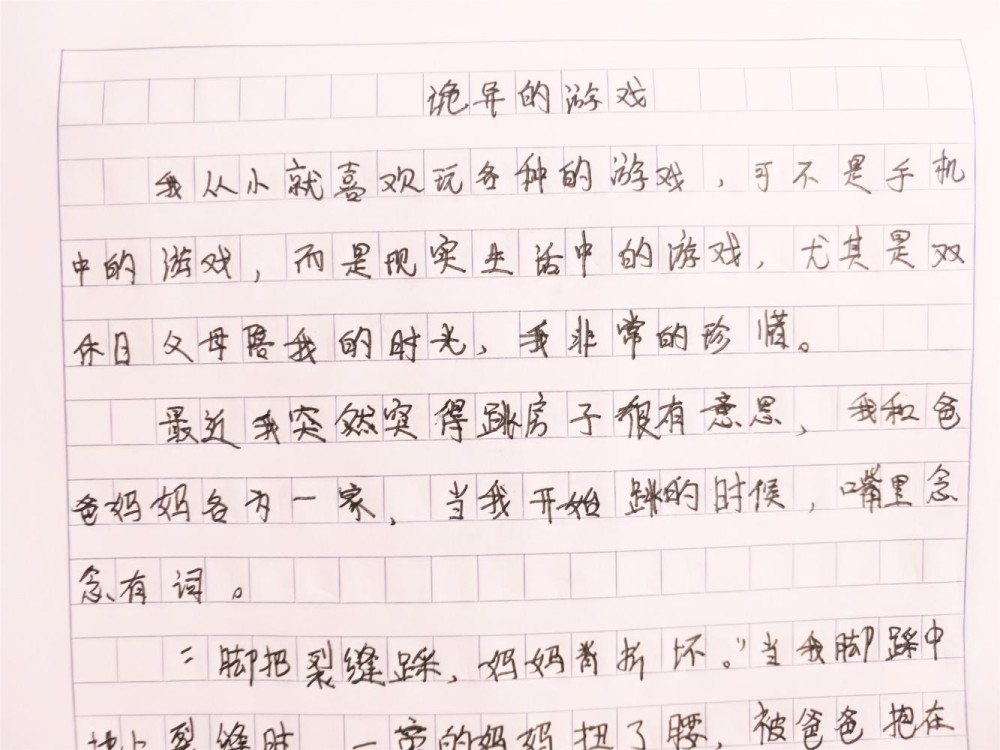 诡异的游戏
我从小就喜欢玩各种的游戏，可不是手机
中的游戏，而是现实生活中的游戏，尤其是双
休日父母陪我的时光，我非常的珍惜。
最近我突然突得跳房子很有意思，我和爸
爸妈妈各为一家，当我开始跳的时候，嘴里念
念有词。
“脚把裂缝踩，妈妈背折坏。”当我脚踩中
地上裂缝时，一旁的妈妈扭了腰，被爸爸抱在